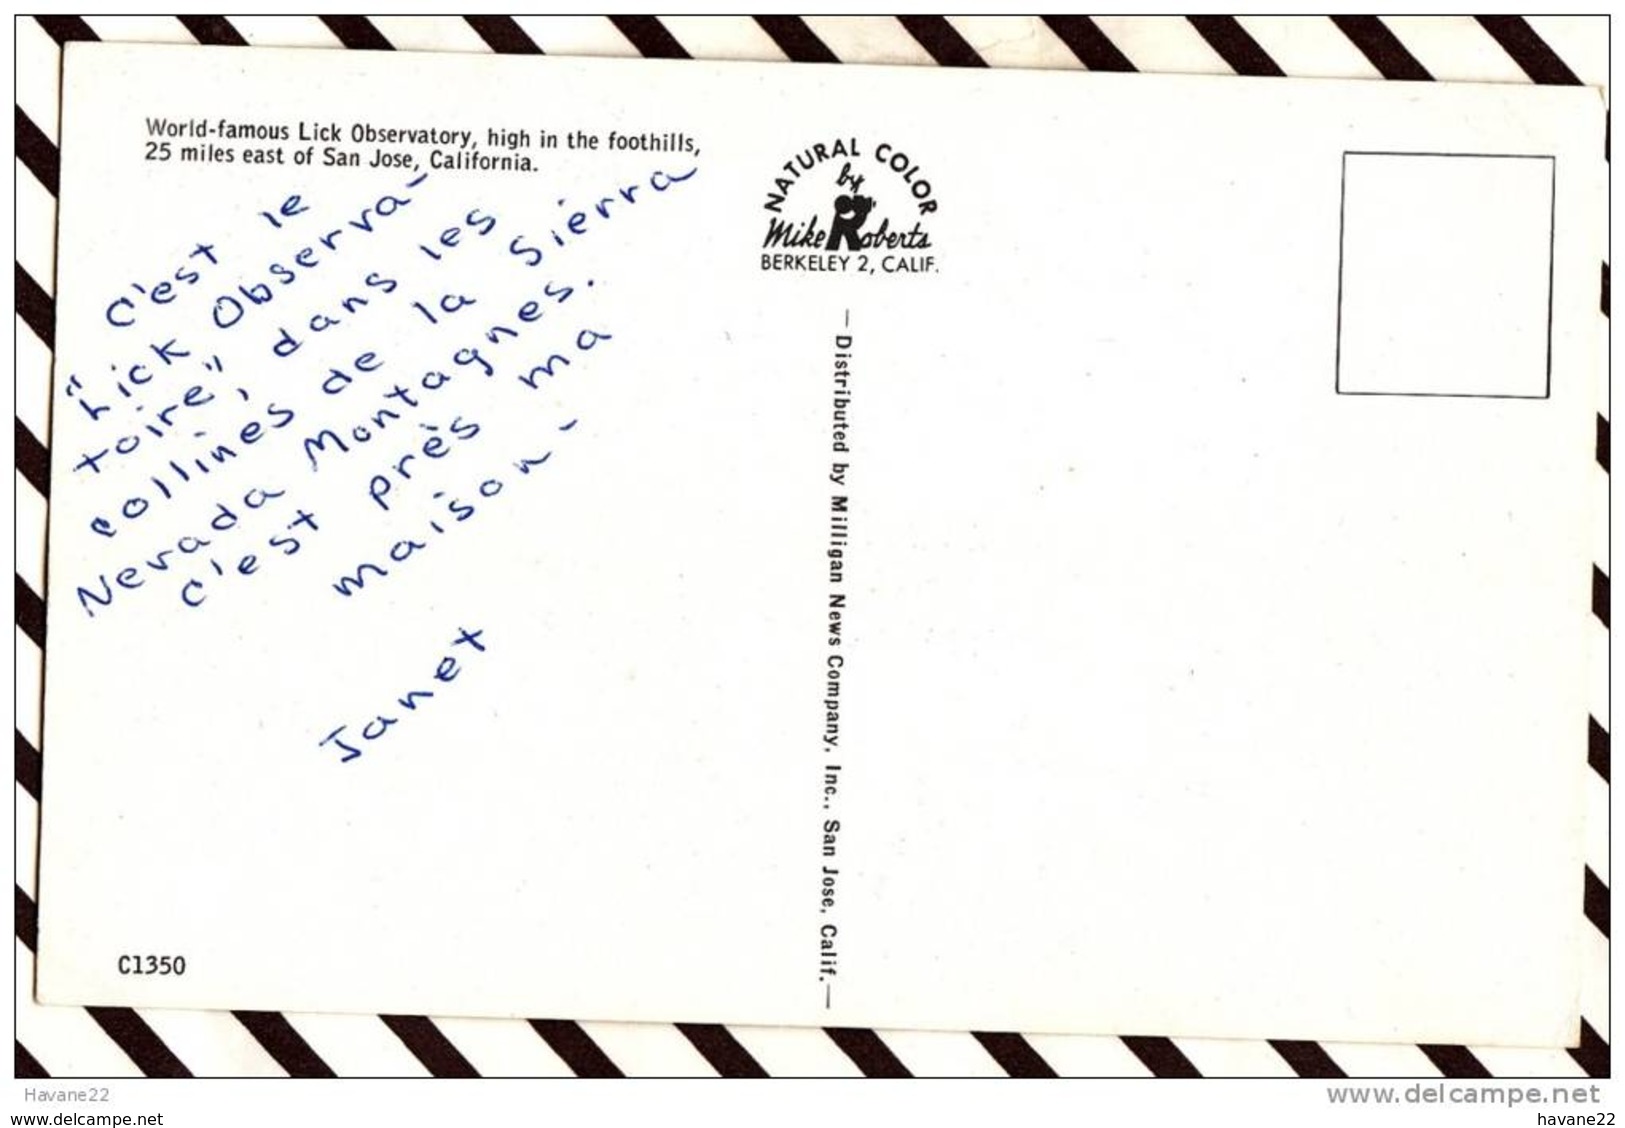 World-famous Lick Observatory, high in the foothills,
25 miles east of San Jose, California.
C'est le
"Lick Observa-
toire", dans les
collines de la Sierra
Nevada Montagnes.
C'est près ma
maison-
Janet
C1350
NATURAL COLOR
by
Mike Roberts
BERKELEY 2, CALIF.
— Distributed by Milligan News Company, Inc., San Jose, Calif. —
Havane22
www.delcampe.net
www.delcampe.net
havane22